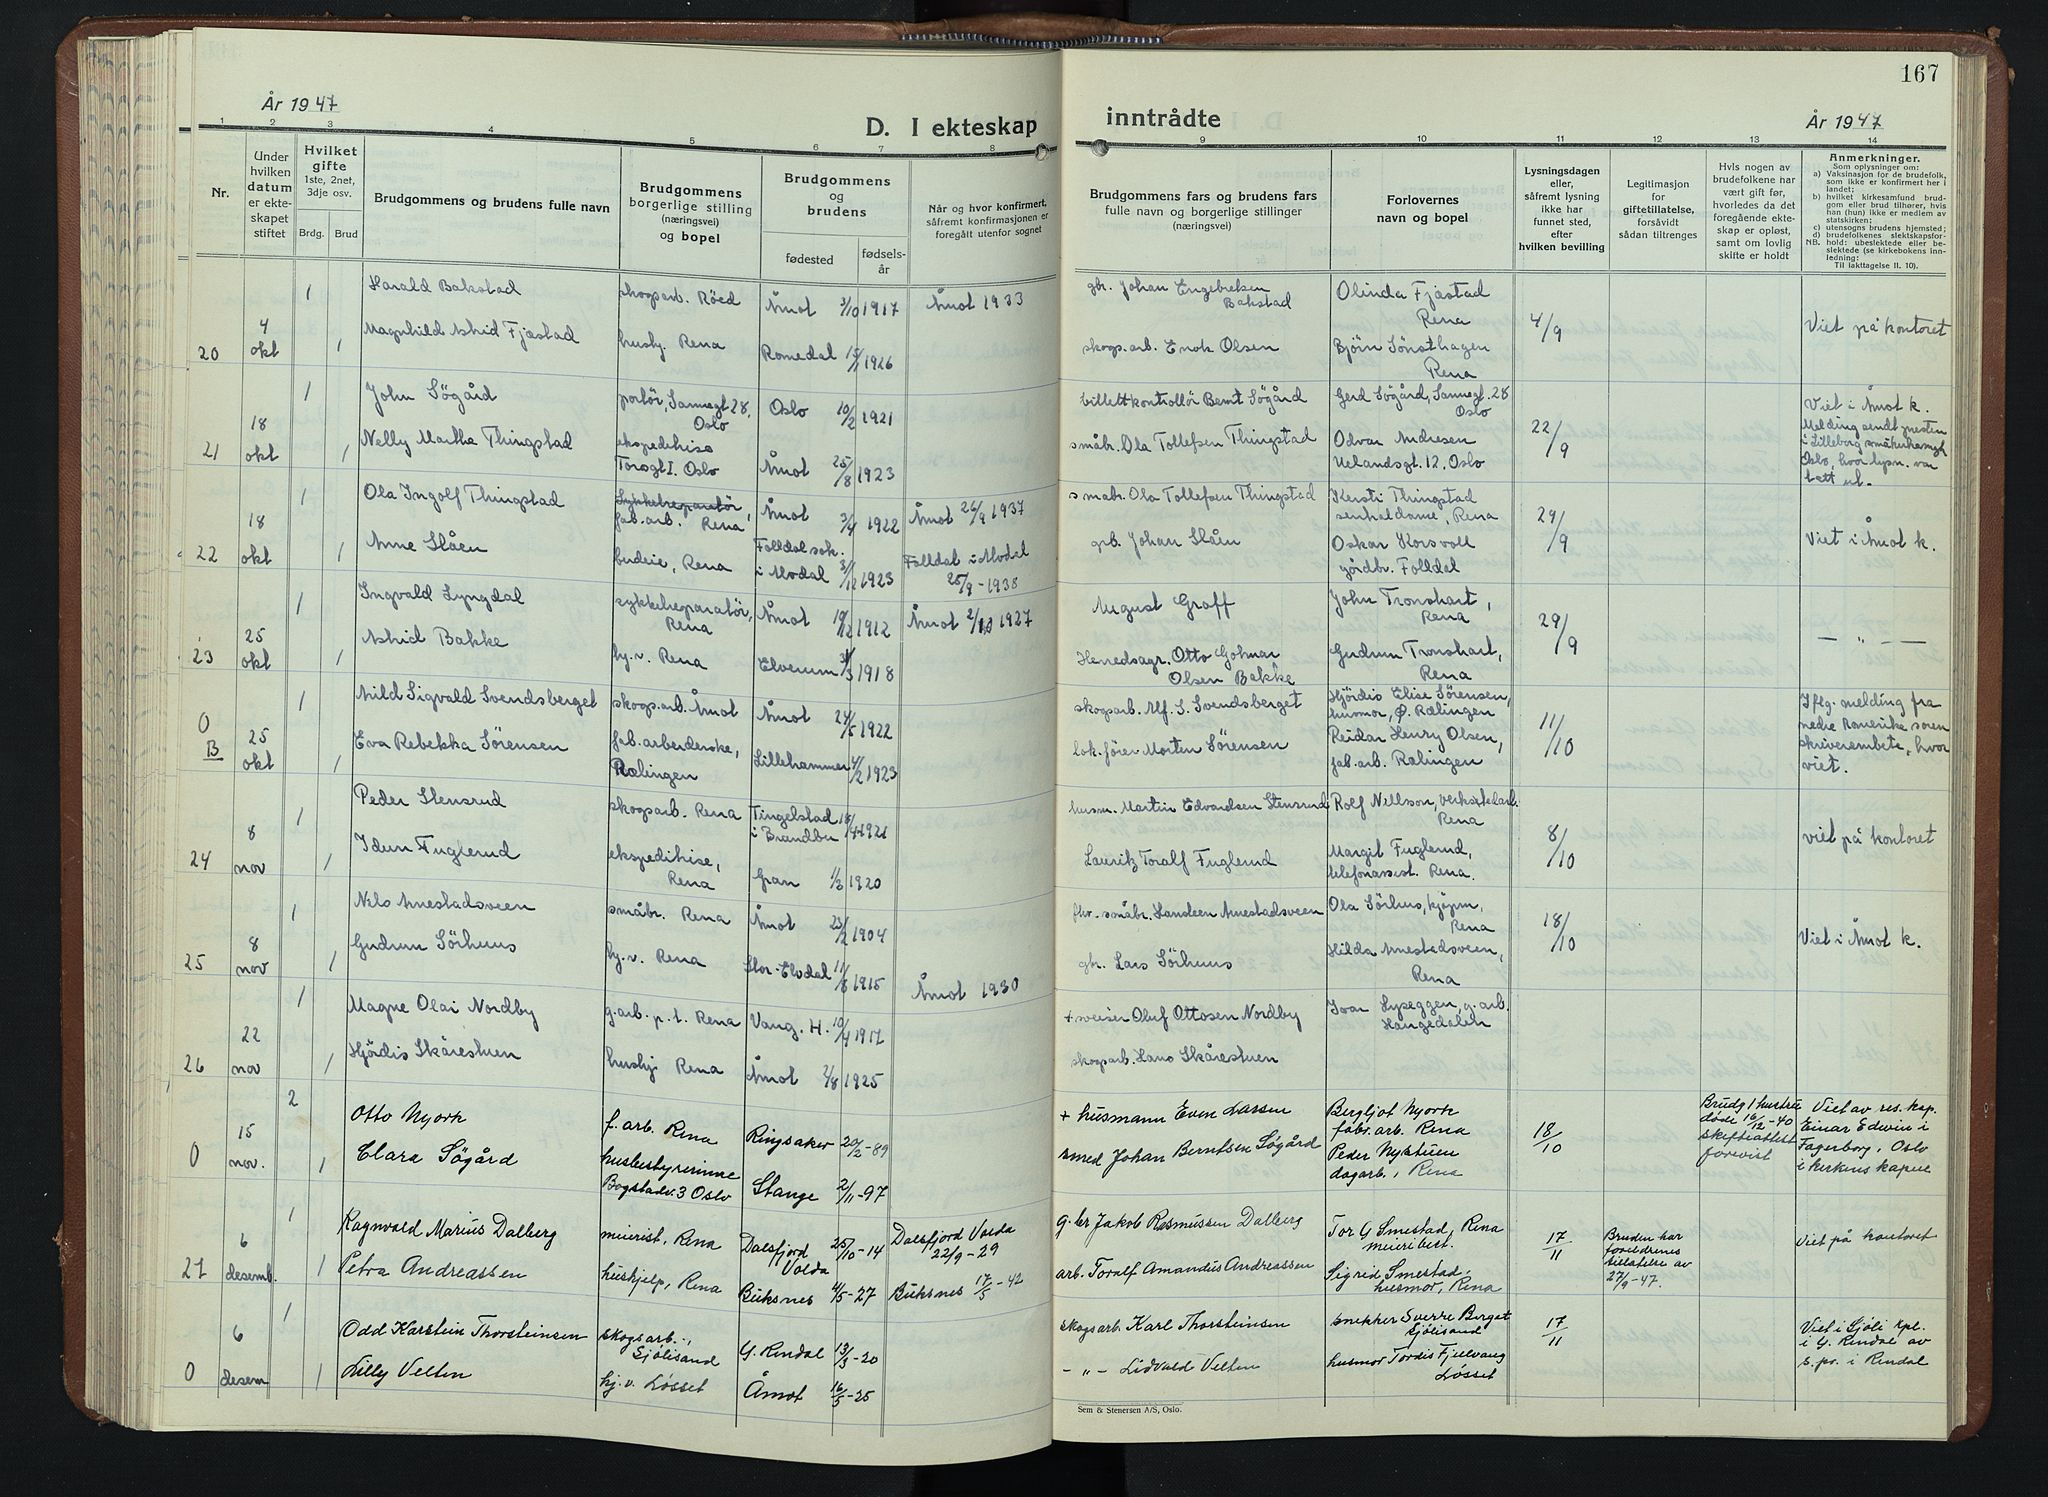 167
År 1947
D. I ekteskap
inntrådte
År 1947
1 2 3 4 5 6 7 8 9 10 11 12 13 14
Nr.
Under hvilken datum er ekteskapet stiftet
Hvilket gifte
1ste, 2net, 3dje osv.
Brdg. Brud
Brudgommens og brudens fulle navn
Brudgommens borgerlige stilling (næringsvei) og bopel
Brudgommens og brudens
fødested
fødselsår
Når og hvor konfirmert, såfremt konfirmasjonen er foregått utenfor sognet
Brudgommens fars og brudens fars fulle navn og borgerlige stillinger (næringsvei)
Forlovernes navn og bopel
Lysningsdagen eller, såfremt lysning ikke har funnet sted, efter hvilken bevilling
Legitimasjon for giftetillatelse, forsåvidt sådan tiltrenges
Hvis nogen av brudefolkene har vært gift før, hvorledes da det foregående ekteskap er opløst, samt om lovlig skifte er holdt
Anmerkninger.
Som oplysninger om:
a) Vaksinasjon for de brudefolk, som ikke er konfirmert her i landet;
b) hvilket kirkesamfund brudgom eller brud tilhører, hvis han (hun) ikke er medlem av statskirken;
c) utensogns brudens hjemsted;
d) brudefolkenes slektskapsforhold: ubeslektede eller beslektede (se kirkebokens innledning;
NB. Til Iakttagelse II. 10).
20 4 okt
1 Harald Bakstad skogsarb. Röed Åmot 3/10 1917 Åmot 1933 gbr. Johan Engebretsen Bakstad Olinda Fjæstad Rena 4/9 Viet på kontoret
1 Magnhild Astrid Fjæstad hushj. Rena Romedal 15/1 1926 skogs.arb. Enok Olsen Bjørn Sönsthagen Rena
21 18 okt
1 John Sögård portör, Sannergt 28, Oslo Oslo 10/2 1921 billettkontrollör Bernt Sögård Gerd Sögård, Sannergt. 28 Oslo 22/9 Viet i Åmot k. Melding sendt presten i Lilleborg småkirkemenigh Oslo, hvor lysn. var tatt ut.
1 Nelly Martha Thingstad ekspeditrise Torsgt 1. Oslo Åmot 25/8 1923 småbr. Ola Tollefsen Thingstad Odvar Andresen Uelandsgt. 12, Oslo
22 18 okt
1 Ola Ingolf Thingstad Sykkelreparatör, fab.arb. Rena Åmot 3/4 1922 Åmot 26/9 1937 småbr. Ola Tollefsen Thingstad Kersti Thingstad sentraldame, Rena 29/9 Viet i Åmot k.
1 Anne Slåen budeie, Rena Folldal sok. i Alvdal 3/12 1923 Folldal i Alvdal 25/9-1938 gb. Johan Slåen Oskar Korsvoll gårdbr. Folldal
23 25 okt
1 Ingvald Lyngdal sykkelreparatör, Rena Åmot 19/12 1912 Åmot 2/10 1927 August Graff John Tronshart, Rena 29/9 — " —
1 Astrid Bakke hj.v. Rena Elverum 31/3 1918 Herredsagr. Otto Gohnar Olsen Bakke Gudrun Tronshart, Rena
0 B 25 okt
1 Arild Sigvald Svendsberget skogs.arb. Åmot Åmot 24/5 1922 skogsarb. Alf. S. Svendsberget Hjördis Elise Sörensen, husmor, Ø. Rælingen 11/10 Iflg. melding fra nedre Romerike sorenskriverembete, hvor viet.
1 Eva Rebekka Sörensen fab.arbeiderske, Rælingen Lillehammer 4/2 1923 lok.förer Morten Sörensen Reidar Henry Olsen, fab.arb. Rælingen
24 8 nov
1 Peder Stensrud skogsarb. Rena Tingelstad i Brandbu 18/4 1921 husm. Martin Edvardsen Stensrud Rolf Nellson, verkstedarb. Rena 8/10 viet på kontoret
1 Idun Fuglerud ekspeditrise, Rena Gran 1/3 1920 Lauritz Toralf Fuglerud Margit Fuglerud, telefonassist. Rena.
25 8 nov
1 Nils Arnestadsveen småbr. Rena Åmot 23/2 1904 fhv. småbr. Hansteen Arnestadsveen Ola Sörhus, kjøpm, Rena 18/10 Viet i Åmot k.
1 Gudrun Sörhuus hj.v. Rena Stor-Elvdal 11/8 1915 Åmot 1930 gbr. Lars Sörhuus Hilda Arnestadsveen, Rena
26 22 nov
1 Magne Olai Nordby g.arb. p.t. Rena Vang. H. 10/4 1917 + sveiser Oluf Ottosen Nordby Ivar Lyseggen, g.arb. Haugedalen
1 Hjördis Skårestuen hushj. Rena Åmot 2/8 1925 skogsarb. Hans Skårestuen
0 15 nov.
2 Otto Myorh f.arb. Rena Ringsaker 20/2-89 + husmann Even Larsen Bergljot Myorh fabr.arb. Rena 18/10 Brudg. 1 hustru döde 16/12-40 skifteattest forevist Viet av res.kap. Einar Edwin i Fagerborg, Oslo i kirkens kapell
1 Clara Sögård husbestyrerinne Bogstadv. 3 Oslo Stange 2/11-97 smed Johan Berntsen Sögård Peder Nystuen dagarb., Rena
27 6 desemb.
1 Ragnvald Marius Dalberg meierist, Rena Dalsfjord Volda 25/10-14 Dalsfjord Volda 22/9-29 g.br Jakob Rasmussen Dalberg Tor G Smestad, Rena meieribest. 17/11 Bruden har foreldrenes tillatelse av 27/9-47. Viet på kontoret
1 Petra Andreassen hushjelp, Rena Buksnes 4/5-27 Buksnes 17/5-42 arb. Toralf Amandus Andreassen Sigrid Smestad, husmor, Rena
0 6 desem
1 Odd Karstein Thorsteinsen skogsarb., Sjölisand G. Rendal 13/3-20 skogsarb. Karl Thorsteinsen snekker Sverre Berget Sjölisand 17/11 Viet i Sjöli kpl. i G. Rendal av s.pr. i Rendal
1 Lilly Velten hj.v. Løsset Åmot 16/5-25 — " — Lidvald Velten husmor Tordis Fjellvang Løsset
Sem & Stenersen A/S, Oslo.